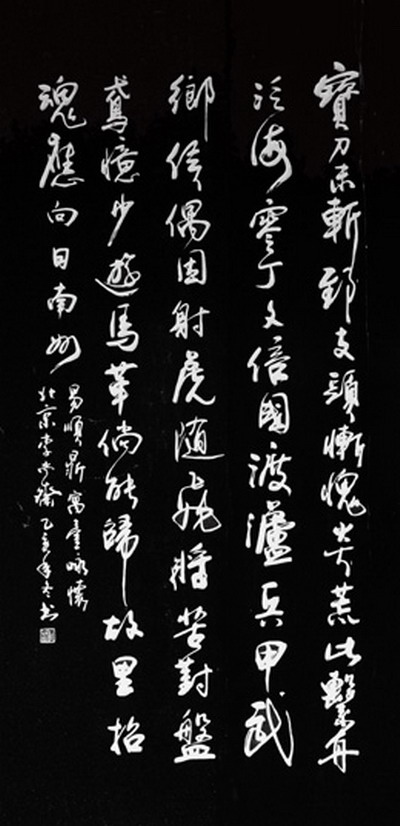 寶刀未斬郅支頭慚愧炎荒此繫舟
泛海零丁文信國渡瀘兵甲武
鄉侯偶因射虎隨飛將苦對盤
鳶憶少遊馬革倘能歸故里招
魂應向日南州
易順鼎寓臺咏懷
北京李乙亥年冬書